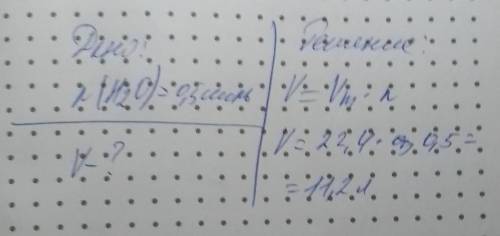 Дано:
n(H₂O) = 0,5 моль
V - ?
Решение:
V = Vm · n
V = 22,4 · 0,5 =
= 11,2 л